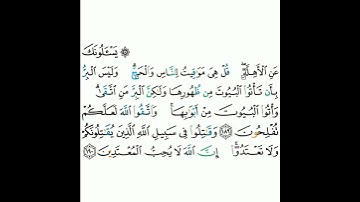 ۞ يَسْـَٔلُونَكَ
عَنِ ٱلْأَهِلَّةِۖ قُلْ هِىَ مَوَٰقِيتُ لِلنَّاسِ وَٱلْحَجِّۗ وَلَيْسَ ٱلْبِرُّ
بِأَن تَأْتُوا۟ ٱلْبُيُوتَ مِن ظُهُورِهَا وَلَٰكِنَّ ٱلْبِرَّ مَنِ ٱتَّقَىٰۗ
وَأْتُوا۟ ٱلْبُيُوتَ مِنْ أَبْوَٰبِهَاۚ وَٱتَّقُوا۟ ٱللَّهَ لَعَلَّكُمْ
تُفْلِحُونَ ١٨٩ وَقَٰتِلُوا۟ فِى سَبِيلِ ٱللَّهِ ٱلَّذِينَ يُقَٰتِلُونَكُمْ
وَلَا تَعْتَدُوٓا۟ۚ إِنَّ ٱللَّهَ لَا يُحِبُّ ٱلْمُعْتَدِينَ ١٩٠